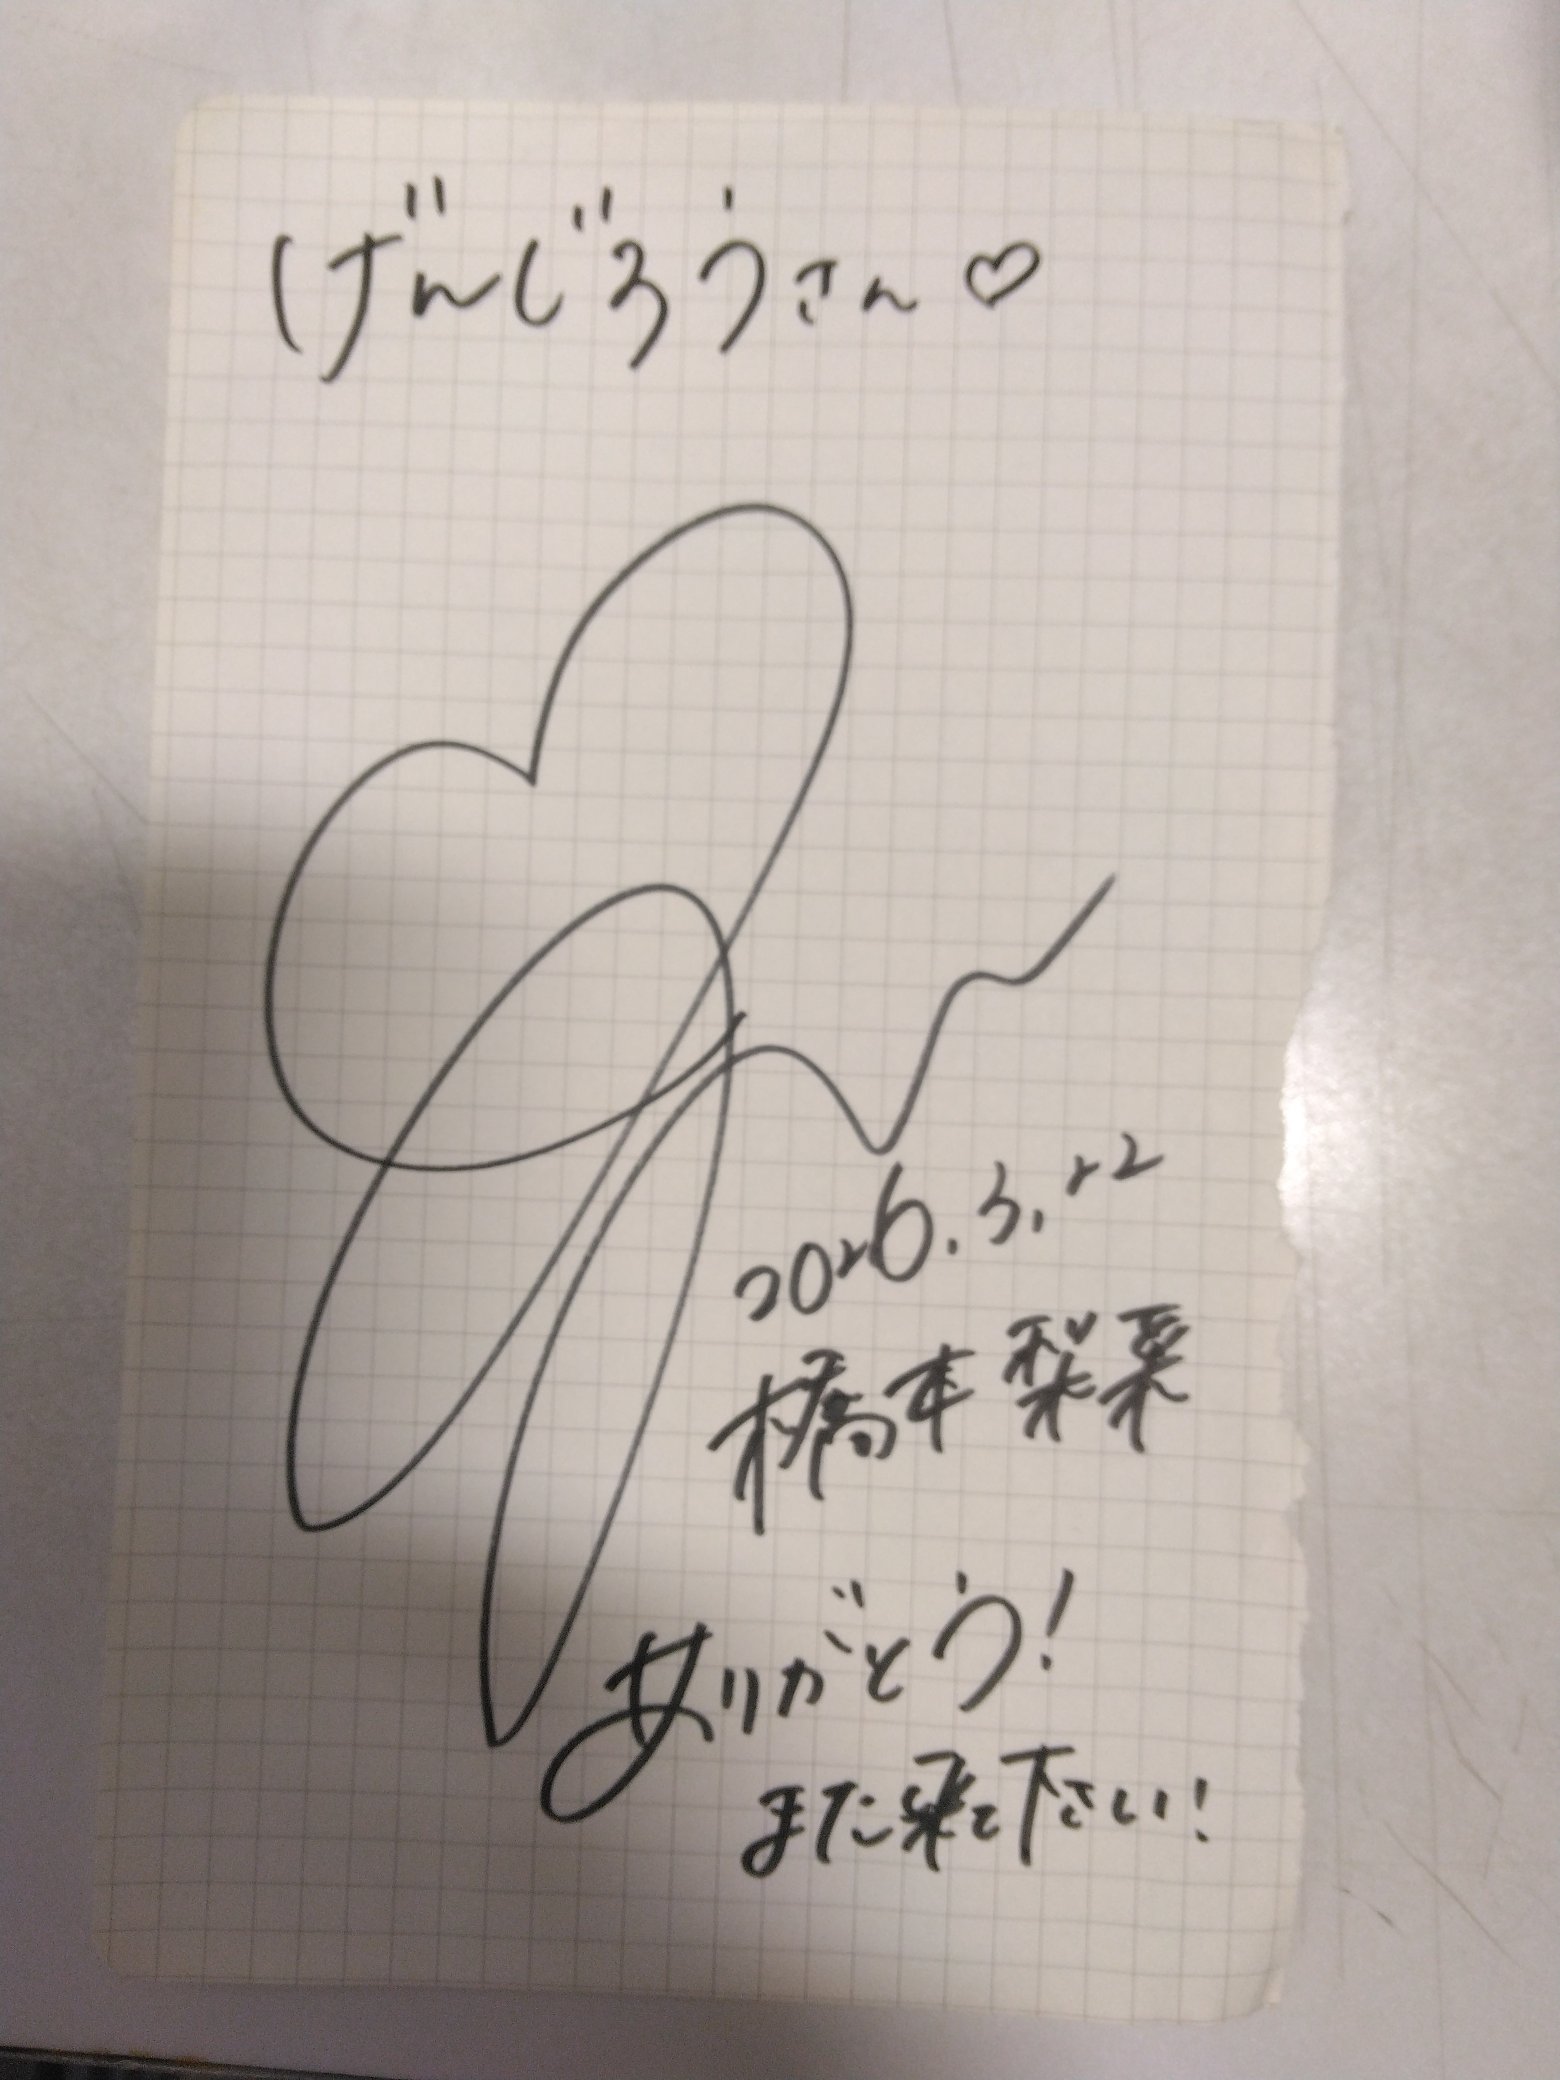 げんじろうさん♡
2026.3.22
橋本梨菜
ありがとう!
また来て下さい!